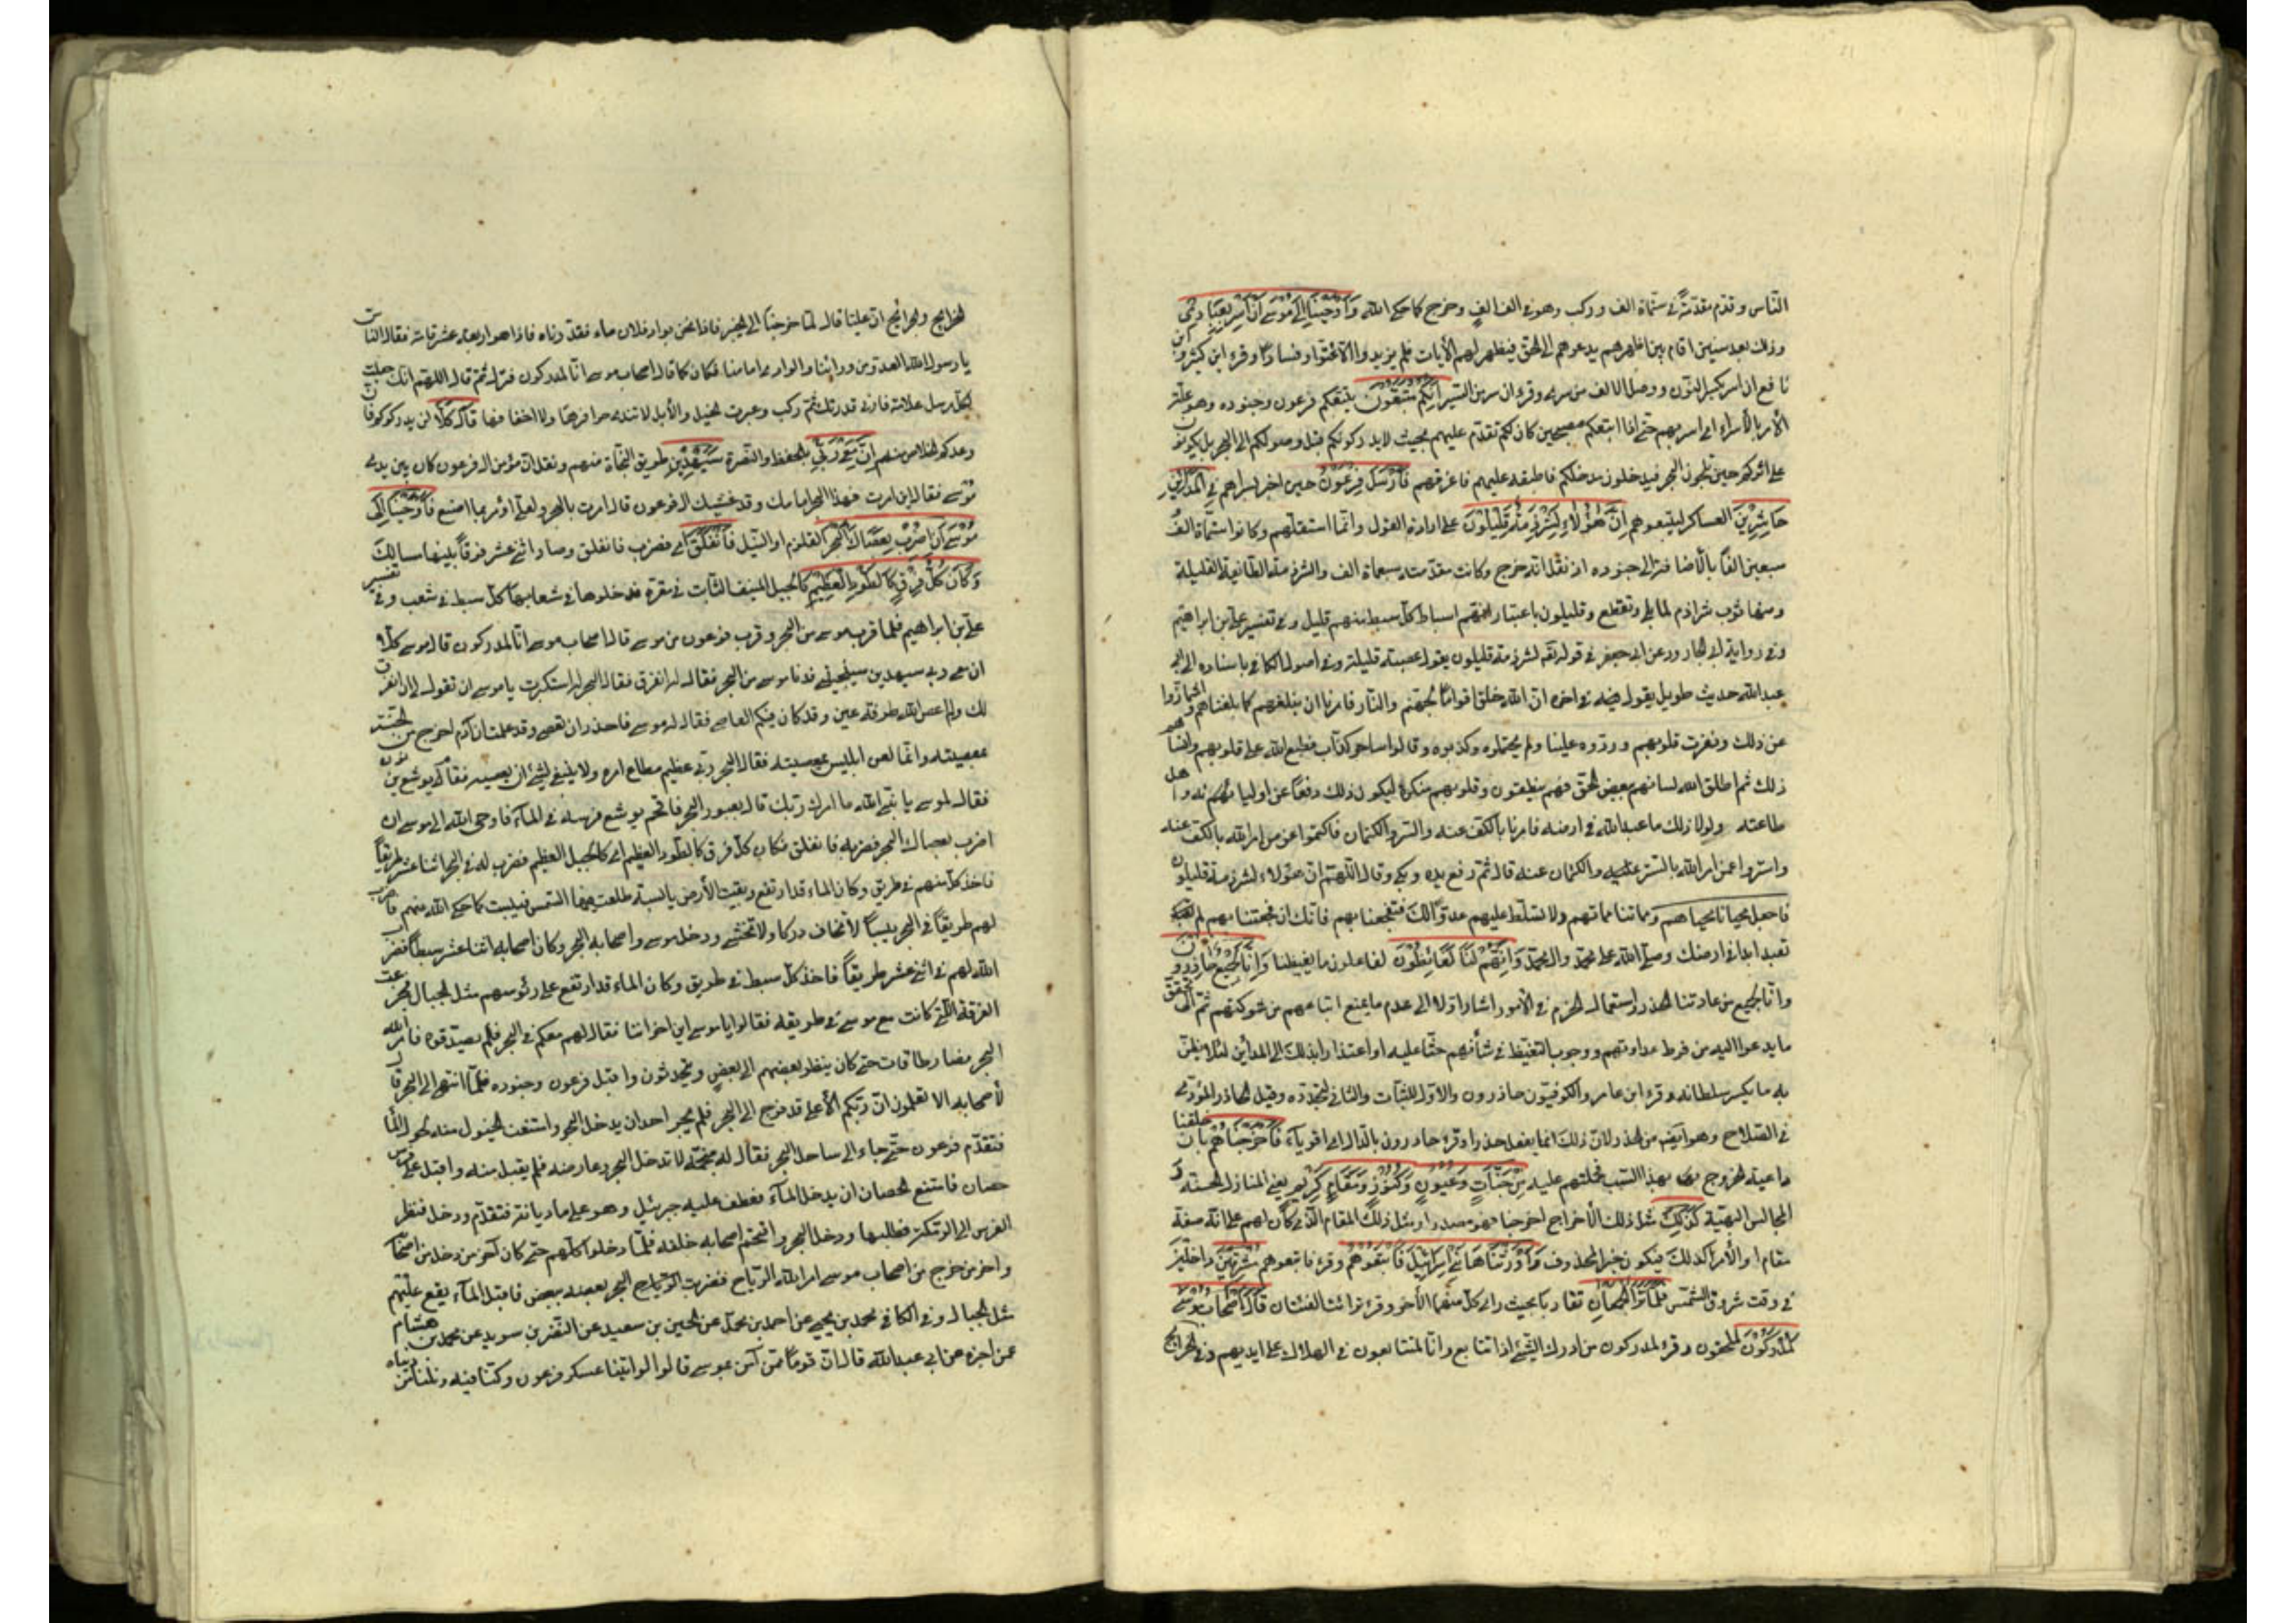 الناس وقدم مقدمته في ستمأة الف وركب وهو في الف الف وخرج كما حكى الله وَأَوْحَيْنَا إِلَىٰ مُوسَىٰ أَنْ أَسْرِ بِعِبَادِي
وذلك بعد سنين اقام بين اظهرهم يدعوهم الى الحق فيظهر لهم الآيات فلم يزيدوا الا عتوا وفسادا وقرء ابن كثير و
نافع ان اسر بكسر النون ووصل الالف من سرى وقرء ان سر من السير إِنَّكُمْ مُتَّبَعُونَ يتبعكم فرعون وجنوده وهو علة
الأمر بالأسراء اى اسر بهم حتى اذا اتبعكم مصبحين كان لكم تقدم عليهم بحيث لا يدركونكم قبل وصولكم الى البحر بل يكونون
على اثركم حين تلجون البحر فيدخلون مدخلكم فاطبقه عليهم فاغرقهم فَأَرْسَلَ فِرْعَوْنُ حين اخبر بسراهم فِي الْمَدَائِنِ
حَاشِرِينَ العساكر ليتبعوهم إِنَّ هَٰؤُلَاءِ لَشِرْذِمَةٌ قَلِيلُونَ على ارادة القول وانما استقلهم وكانوا ستمأة الف
سبعين الفا بالأضافة الى جنوده اذ نقل انه خرج وكانت مقدمته سبعمأة الف والشرذمة الطائفة القليلة
ومنها ثوب شراذم لما بلى وتقطع وقليلون باعتبار انهم اسباط كل سبط منهم قليل وفي تفسير علي بن ابراهيم
وفي رواية ابى الجارود عن ابى جعفر في قوله تع لشرذمة قليلون يقول عصبة قليلة وفي اصول الكافي باسناده الى ابى
عبدالله حديث طويل يقول فيه في اخره ان الله خلق اقواما لجهنم والنار فامرنا ان نبلغهم كما بلغناهم واشمأزوا
عن ذلك ونفرت قلوبهم وردوه علينا ولم يحتملوه وكذبوه وقالوا ساحر كذاب فطبع الله على قلوبهم وانساهم
ذلك ثم اطلق الله لسانهم ببعض الحق فهم ينطقون وقلوبهم منكرة ليكون ذلك دفعا عن اوليائه واهل
طاعته ولولا ذلك ما عبد الله في ارضه فامرنا بالكف عنه والستر والكتمان فاكتموا عمن امر الله بالكف عنه
واستروا عمن امر الله بالستر عليه والكتمان عنه قال ثم رفع يده وبكى وقال اللهم ان هؤلاء لشرذمة قليلون
فاجعل محيانا محياهم ومماتنا مماتهم ولا تسلط عليهم عدوا لك فتفجعنا بهم فانك ان فجعتنا بهم لم تعبد
تعبد ابدا في ارضك وصلى الله على محمد وال محمد وَإِنَّهُمْ لَنَا لَغَائِظُونَ لفاعلون ما يغيظنا وَإِنَّا لَجَمِيعٌ حَاذِرُونَ
وانا لجميع من عادتنا الحذر واستعمال الحزم في الأمور اشار اولا الى عدم ما يمنع اتباعهم من شوكتهم ثم الى تحقق
ما يدعوا اليه من فرط عداوتهم ووجوب التيقظ في شأنهم حثا عليه او اعتذارا بذلك الى المدائن لئلا يظن
به ما يكسر سلطانه وقرء ابن عامر والكوفيون حاذرون والاول للثبات والثاني للتجدد وقيل الحاذر المؤدي
في السلاح وهو ايضا من الحذر لان ذلك انما يفعل حذرا وقرء حادرون بالدال اى اقوياء فَأَخْرَجْنَاهُمْ بان خلقنا
داعية الخروج بهذا السبب فحملتهم عليه مِنْ جَنَّاتٍ وَعُيُونٍ وَكُنُوزٍ وَمَقَامٍ كَرِيمٍ يعني المنازل الحسنة و
المجالس البهية كَذَٰلِكَ مثل ذلك الأخراج اخرجنا فهو مصدر او مثل ذلك المقام الذي كان لهم على انه صفة
مقام او الأمر كذلك فيكون خبر المحذوف وَأَوْرَثْنَاهَا بَنِي إِسْرَائِيلَ فَأَتْبَعُوهُمْ وقرء فاتبعوهم مُشْرِقِينَ داخلين
في وقت شروق الشمس فَلَمَّا تَرَاءَى الْجَمْعَانِ تقاربا بحيث راى كل منهما الأخر وقرء ترائت الفئتان قَالَ أَصْحَابُ مُوسَىٰ
لَمُدْرَكُونَ لملحقون وقرء لمدركون من ادرك الشئ اذا تتابع وانا لمتتابعون في الهلاك على ايديهم وفي الخرايج
الخرايج والجرائح ان عليا قال لما خرجنا الى خيبر فاذا نحن بواد فلان ماء فقدرناه فاذا هو اربعة عشر قامة فقال الناس
يا رسول الله العدو من ورائنا والوادي امامنا فكان كما قال اصحاب موسى انا لمدركون فنزل ثم قال اللهم انك جعلت
لكل مرسل علامة فارني قدرتك ثم ركب وعبرت الخيل والأبل لا تندى حوافرها ولا اخفافها قَالَ كَلَّا لن يدركوكم فان
وعدكم الخلاص منهم إِنَّ مَعِيَ رَبِّي بالحفظ والنصرة سَيَهْدِينِ طريق النجاة منهم ونقل ان مؤمن ال فرعون كان بين يدى
موسى فقال اين امرت فهذا البحر امامك وقد غشيك ال فرعون قال امرت بالبحر ولعلى اؤمر بما اصنع فَأَوْحَيْنَا إِلَىٰ
مُوسَىٰ أَنِ اضْرِبْ بِعَصَاكَ الْبَحْرَ القلزم او النيل فَانْفَلَقَ اى فضرب فانفلق وصار اثنى عشر فرقا بينها مسالك
فَكَانَ كُلُّ فِرْقٍ كَالطَّوْدِ الْعَظِيمِ كالجبل المنيف الثابت في مقره فدخلوها في شعابها كل سبط في شعب وفي تفسير
علي بن ابراهيم فلما قرب موسى من البحر وقرب فرعون من موسى قال اصحاب موسى انا لمدركون قال موسى كلا
ان معى ربى سيهدين سينجينى فدنا موسى من البحر فقال له انفرق فقال البحر له استكبرت يا موسى ان تقول لى ان انفرق
لك ولم اعص الله طرفة عين وقد كان فيكم العاصى فقال له موسى فاحذر ان تعصى وقد علمت ان آدم اخرج من الجنة
بمعصيته وانما لعن ابليس بمعصيته فقال البحر ربى عظيم مطاع امره ولا ينبغى لشئ ان يعصيه فقام يوشع بن نون
فقال لموسى يا نبى الله ما امرك ربك قال بعبور البحر فاقحم يوشع فرسه في المآء فاوحى الله الى موسى ان
اضرب بعصاك البحر فضربه فانفلق فكان كل فرق كالطود العظيم اى كالجبل العظيم فضرب له في البحر اثنا عشر طريقا
فاخذ كل منهم في طريق وكان الماء قد ارتفع وبقيت الأرض يابسة طلعت فيها الشمس فيبست كما حكى الله منهم فاضرب
لهم طريقا في البحر يبسا لا تخاف دركا ولا تخشى ودخل موسى واصحابه البحر وكان اصحابه اثنا عشر سبطا فضرب
الله لهم في اثنى عشر طريقا فاخذ كل سبط في طريق وكان الماء قد ارتفع على رؤسهم مثل الجبال فجزعت
الفرقة التي كانت مع موسى في طريقه فقالوا يا موسى اين اخواننا فقال لهم معكم في البحر فلم يصدقوه فامر الله
البحر فصار طاقات حتى كان ينظر بعضهم الى بعض ويتحدثون واقبل فرعون وجنوده فلما انتهى الى البحر قال
لأصحابه الا تعلمون ان ربكم الأعلى قد فرج الى البحر فلم يجسر احد ان يدخل البحر وامتنعت الخيول منه لهول الماء
فتقدم فرعون حتى جاء الى ساحل البحر فقال له منجمه لا تدخل البحر وعارضه فلم يقبل منه واقبل على فرس
حصان فامتنع الحصان ان يدخل المآء فعطف عليه جبرئيل وهو على ماديانة فتقدم ودخل فنظر
الفرس الى الرمكة فطلبها ودخل البحر واقتحم اصحابه خلفه فلما دخلوا كلهم حتى كان آخر من دخل من اصحابه
واخر من خرج من اصحاب موسى امر الله الرياح فضربت الرياح البحر بعضه ببعض فاقبل المآء يقع عليهم
مثل الجبال وفي الكافي محمد بن يحيى عن احمد بن محمد عن الحسين بن سعيد عن النضر بن سويد عن محمد بن هشام
عمن اخبره عن ابى عبدالله قال ان قوما ممن آمن بموسى قالوا لو اتينا عسكر فرعون وكنا فيه ونلنا من دنياه